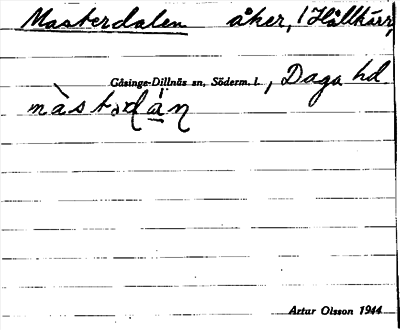 Masterdalen åker, / Hållkärr,
Gåsinge-Dillnäs sn, Söderm. l., Daga hd
Artur Olsson 1944